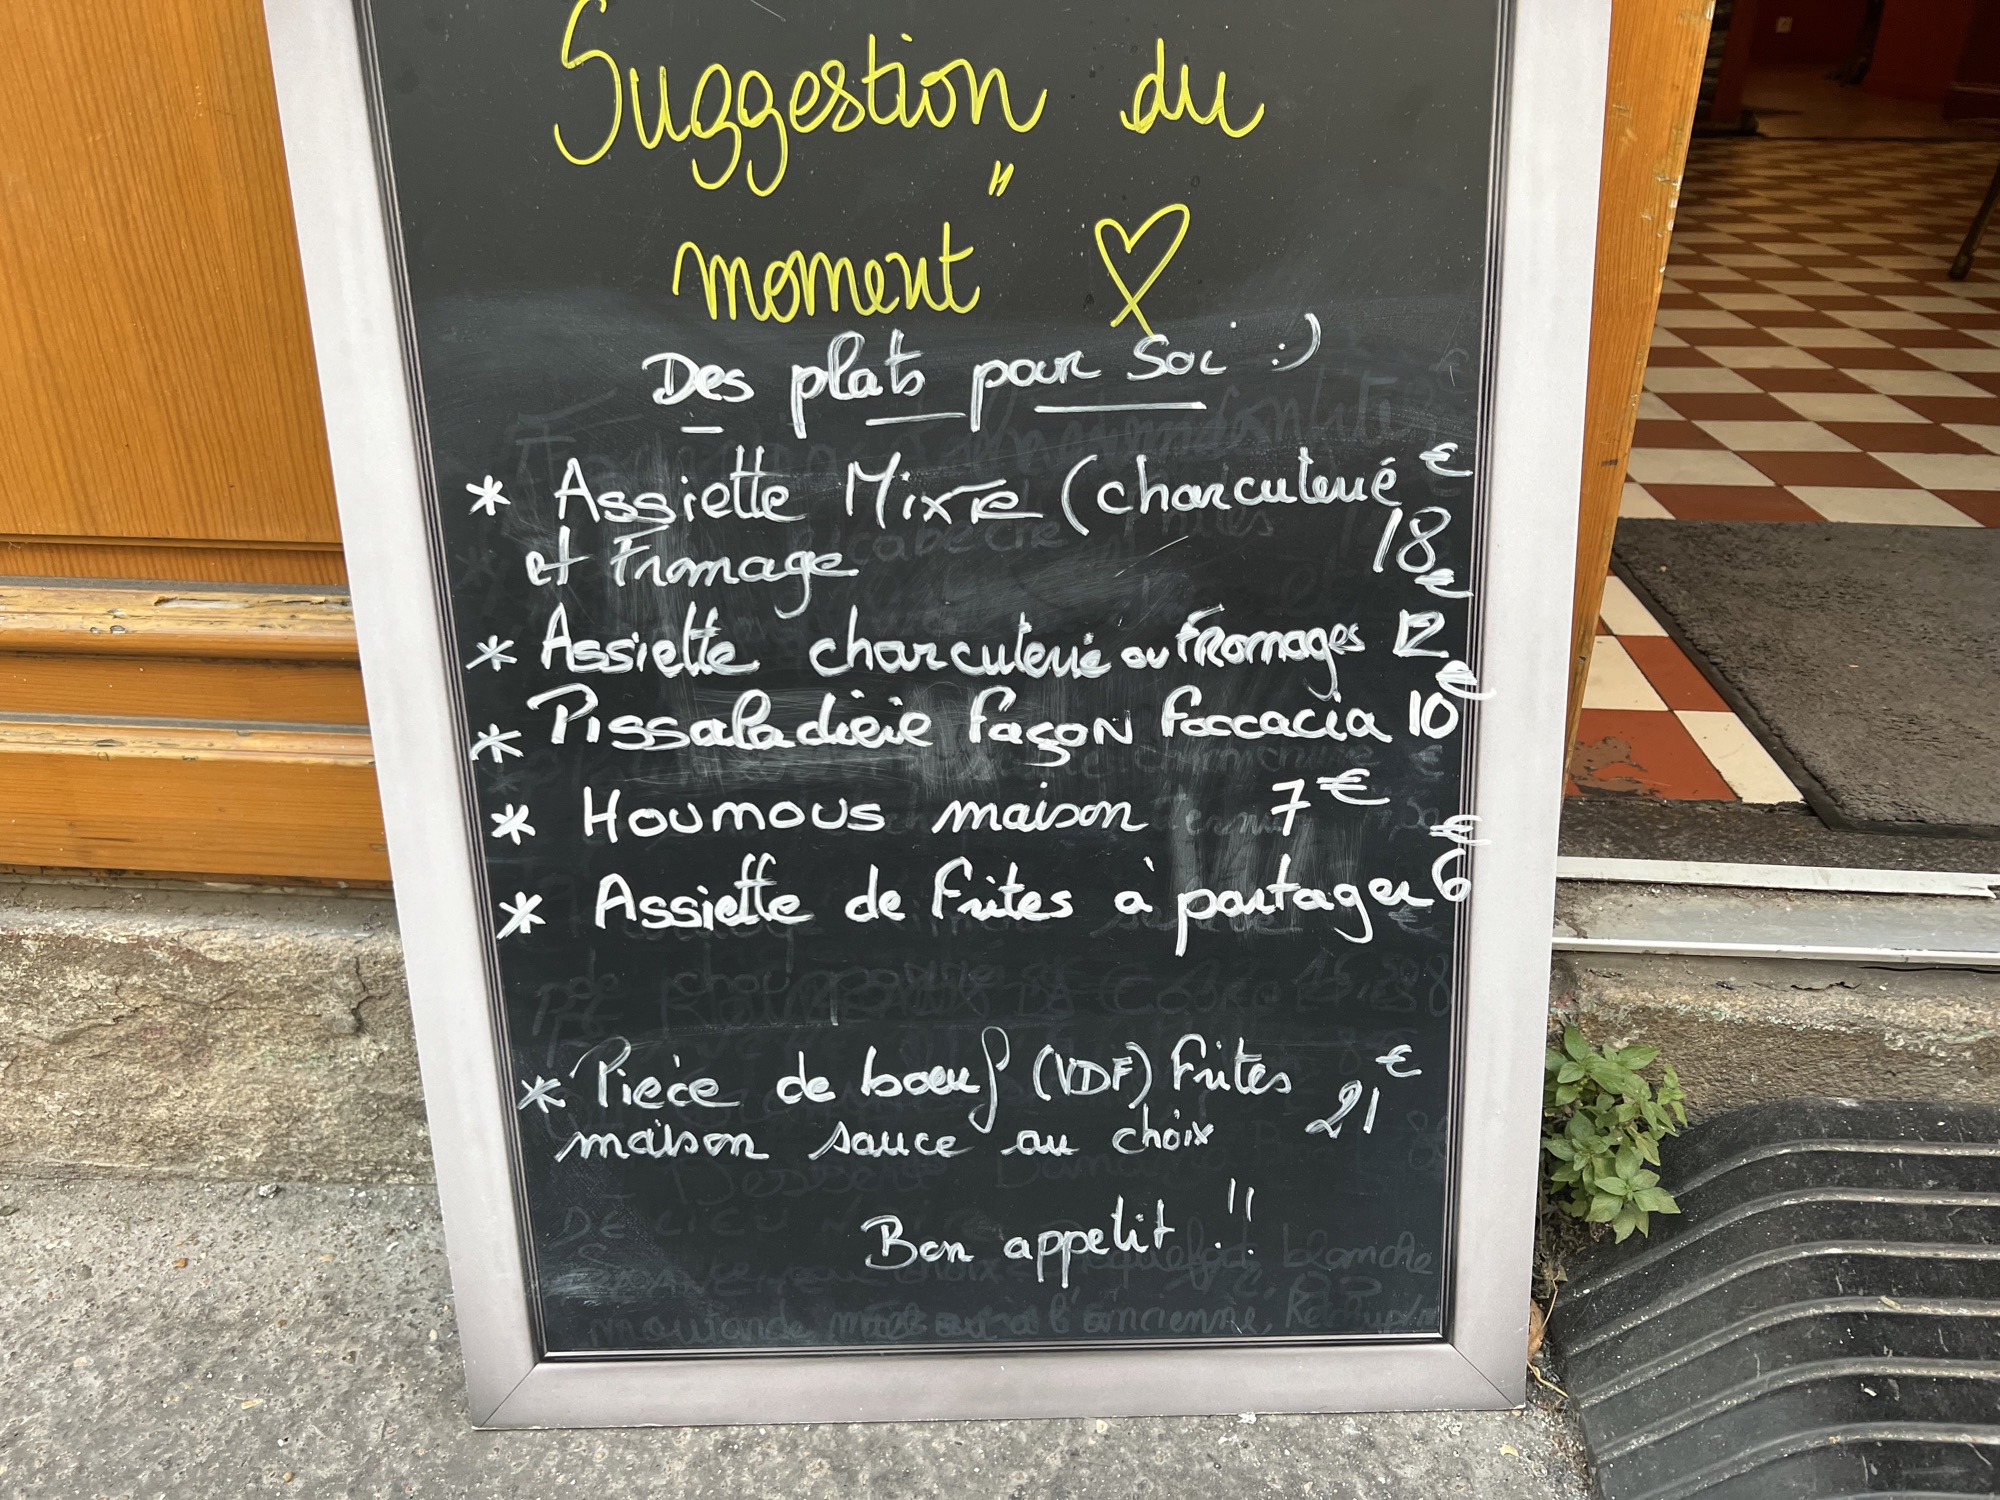 Suggestion du
"moment" ♡
Des plats pour soi :)
* Assiette Mixte (charcuterie
et Fromage 18€
* Assiette charcuterie ou Fromages 12€
* Pissaladière façon foccacia 10€
* Houmous maison 7€
* Assiette de frites à partager 6€
* Pièce de boeuf (VDF) frites
maison sauce au choix 21€
Bon appetit !!